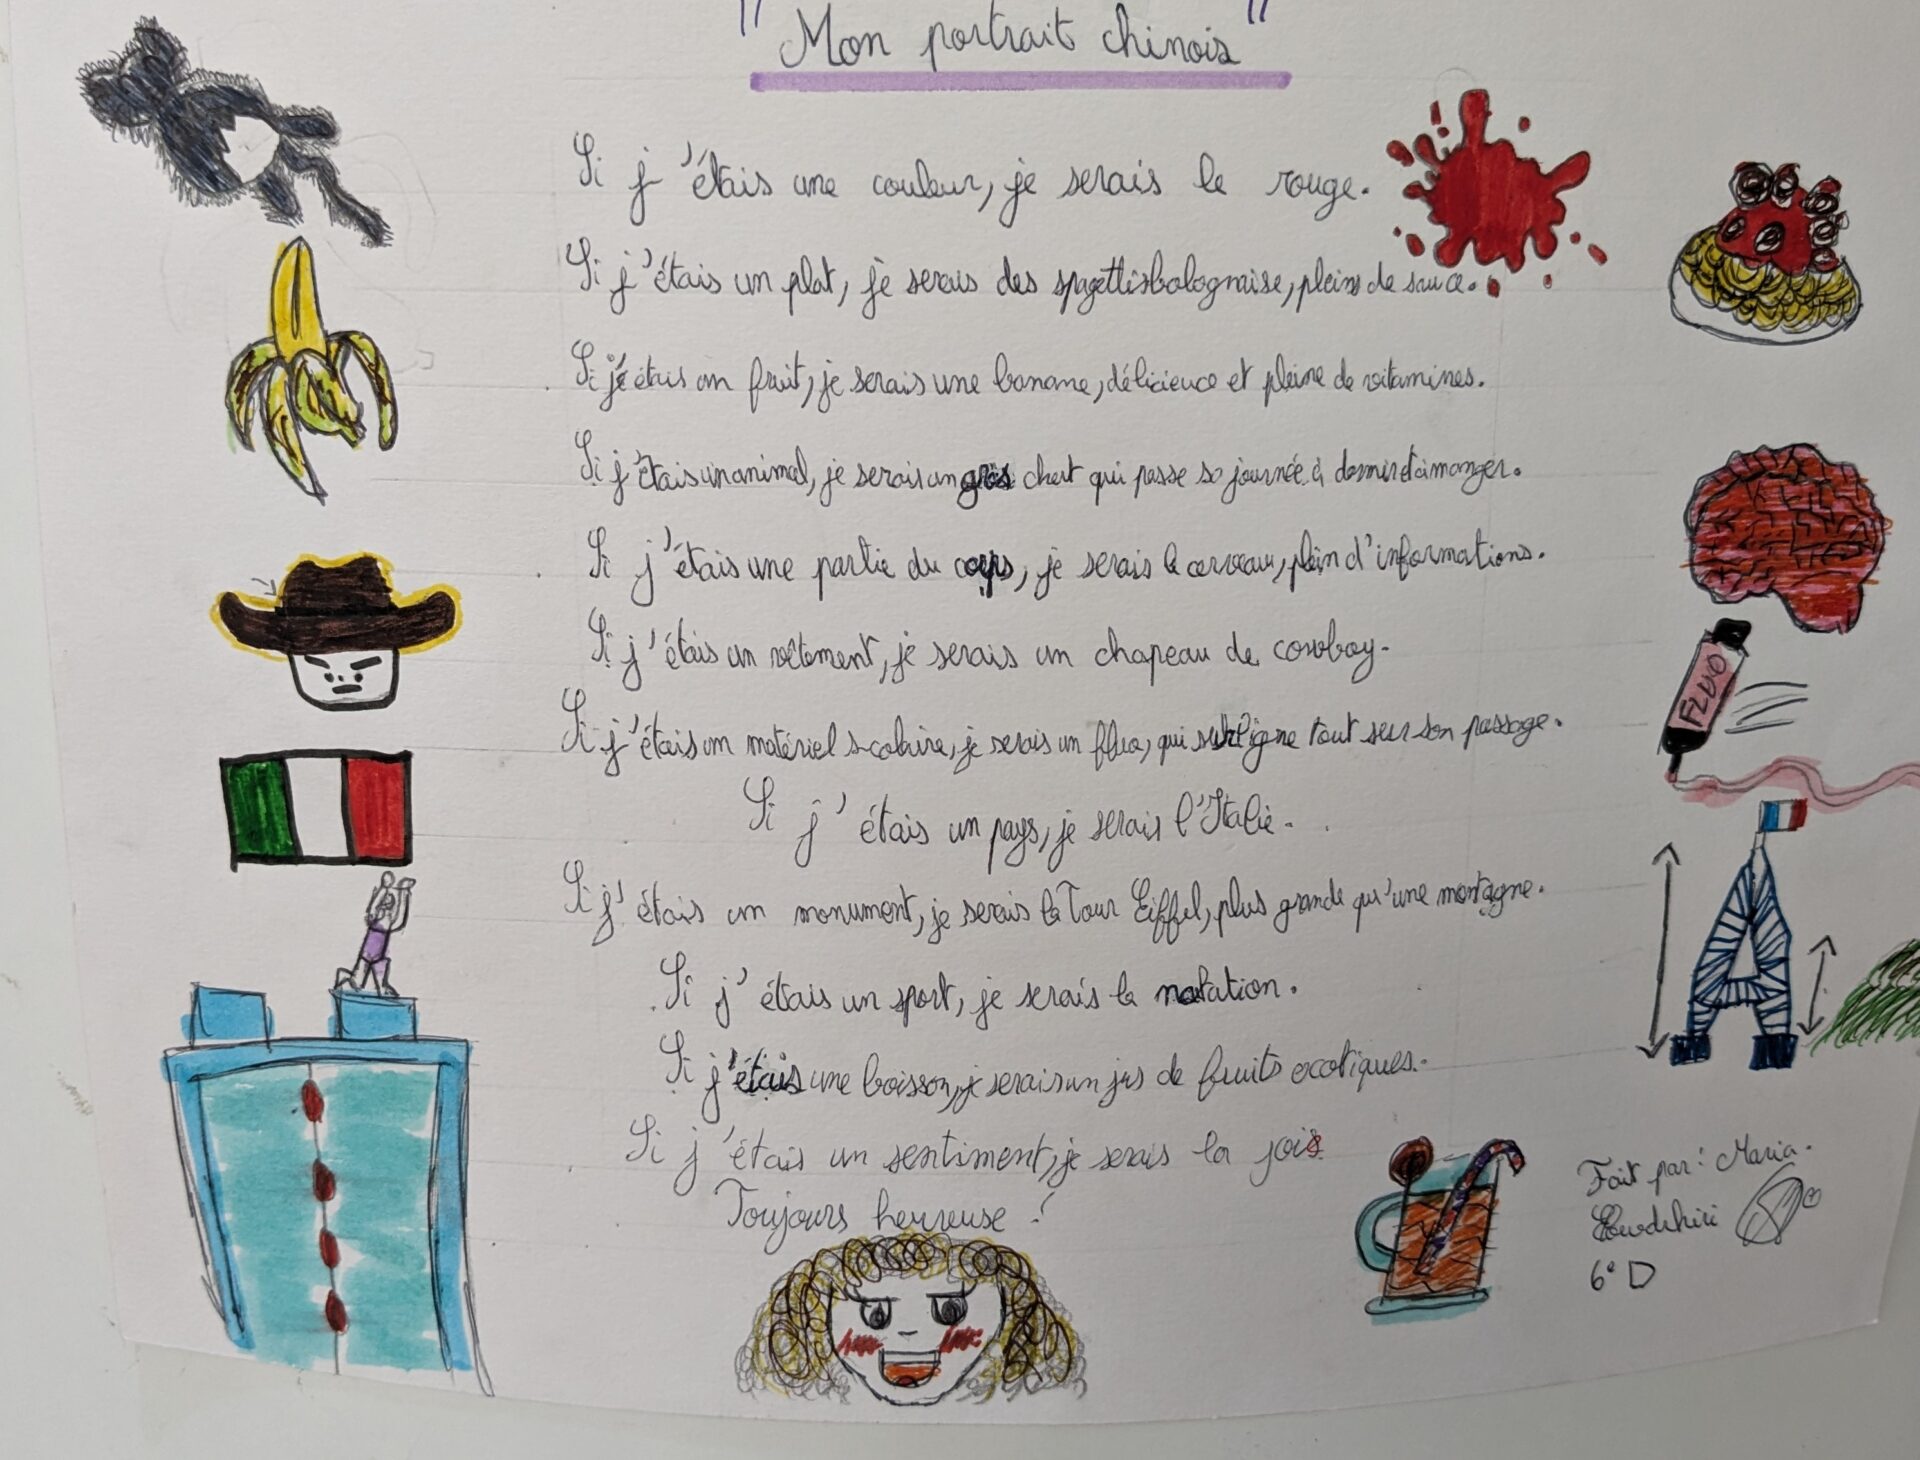 " Mon portrait chinois "
Si j'étais une couleur, je serais le rouge.
Si j'étais un plat, je serais des spagettis bolognaise, pleins de sauce.
Si j'étais un fruit, je serais une banane, délicieuce et pleine de vitamines.
Si j'étais un animal, je serais un gros chat qui passe sa journée à dormir et à manger.
Si j'étais une partie du corps, je serais le cerveau, plein d'informations.
Si j'étais un vêtement, je serais un chapeau de cowboy.
Si j'étais un matériel scolaire, je serais un fluo, qui surligne tout sur son passage.
FLUO
Si j'étais un pays, je serais l'Italie.
Si j'étais un monument, je serais la Tour Eiffel, plus grande qu'une montagne.
Si j'étais un sport, je serais la natation.
Si j'étais une boisson, je serais un jus de fruits exotiques.
Si j'étais un sentiment, je serais la joie
Toujours heureuse !
Fait par : Maria.
6e D